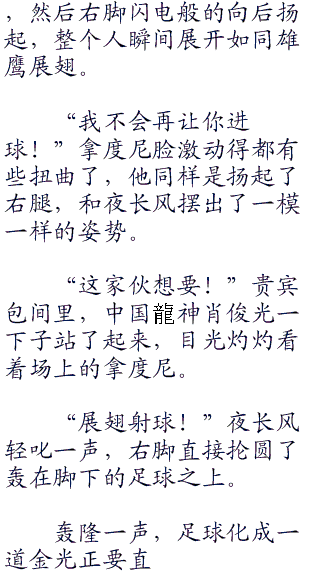 ，然后右脚闪电般的向后扬
起，整个人瞬间展开如同雄
鹰展翅。
“我不会再让你进
球！”拿度尼脸激动得都有
些扭曲了，他同样是扬起了
右腿，和夜长风摆出了一模
一样的姿势。
“这家伙想要！”贵宾
包间里，中国龍神肖俊光一
下子站了起来，目光灼灼看
着场上的拿度尼。
“展翅射球！”夜长风
轻叱一声，右脚直接抡圆了
轰在脚下的足球之上。
轰隆一声，足球化成一
道金光正要直